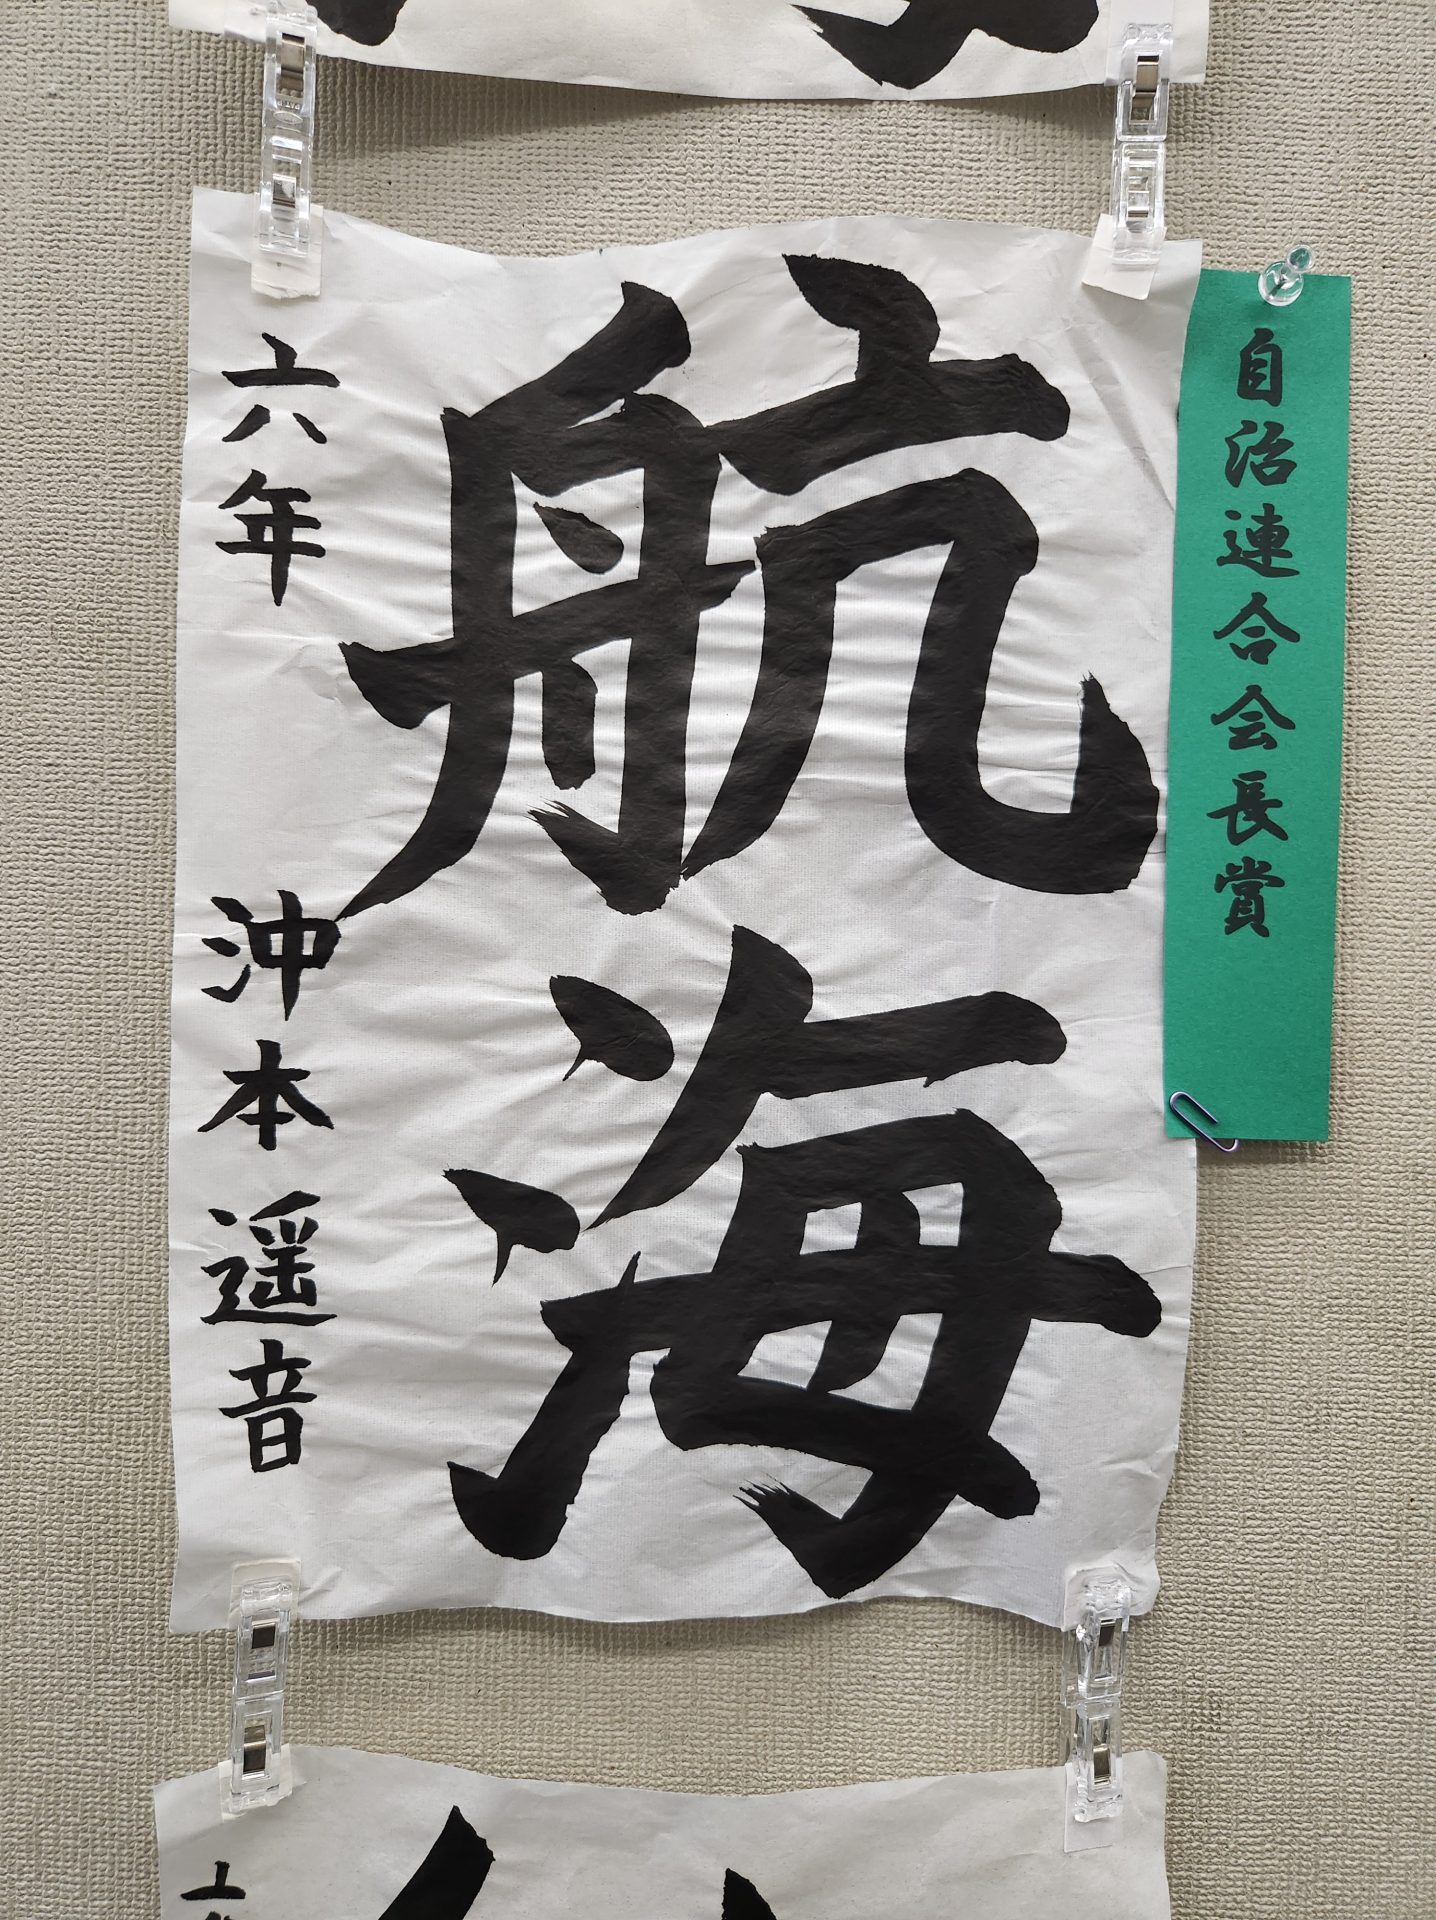 自治連合会長賞
航海
六年 沖本遥音